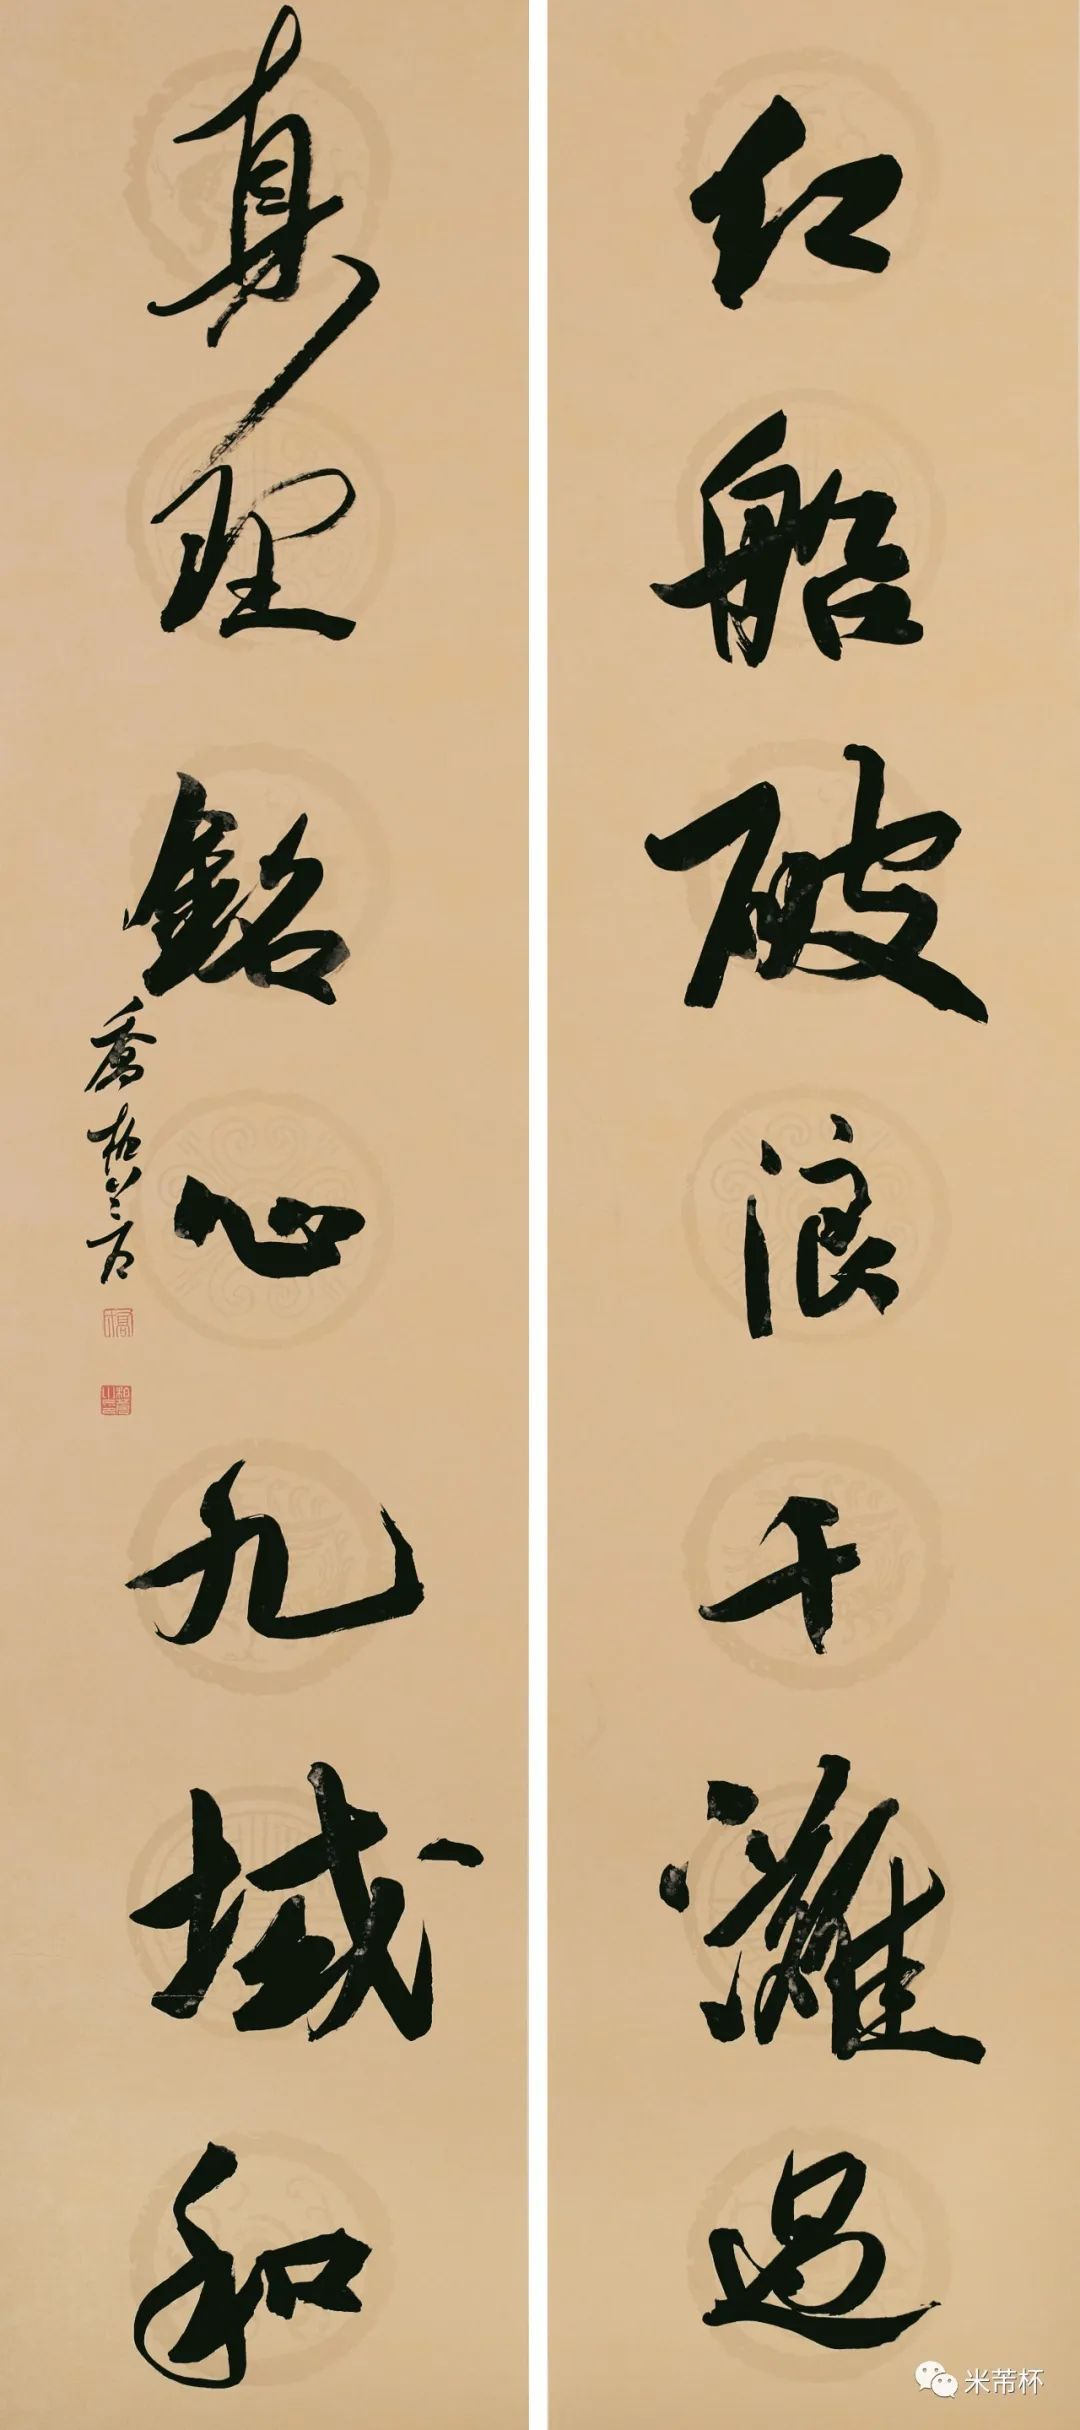 红船破浪千滩过
真理铭心九域和
米芾杯